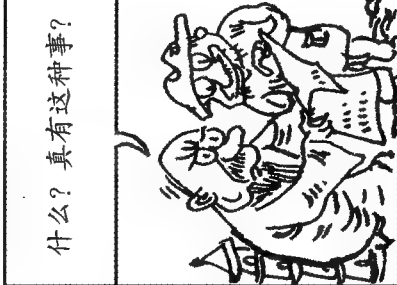 什么？真有这种事？